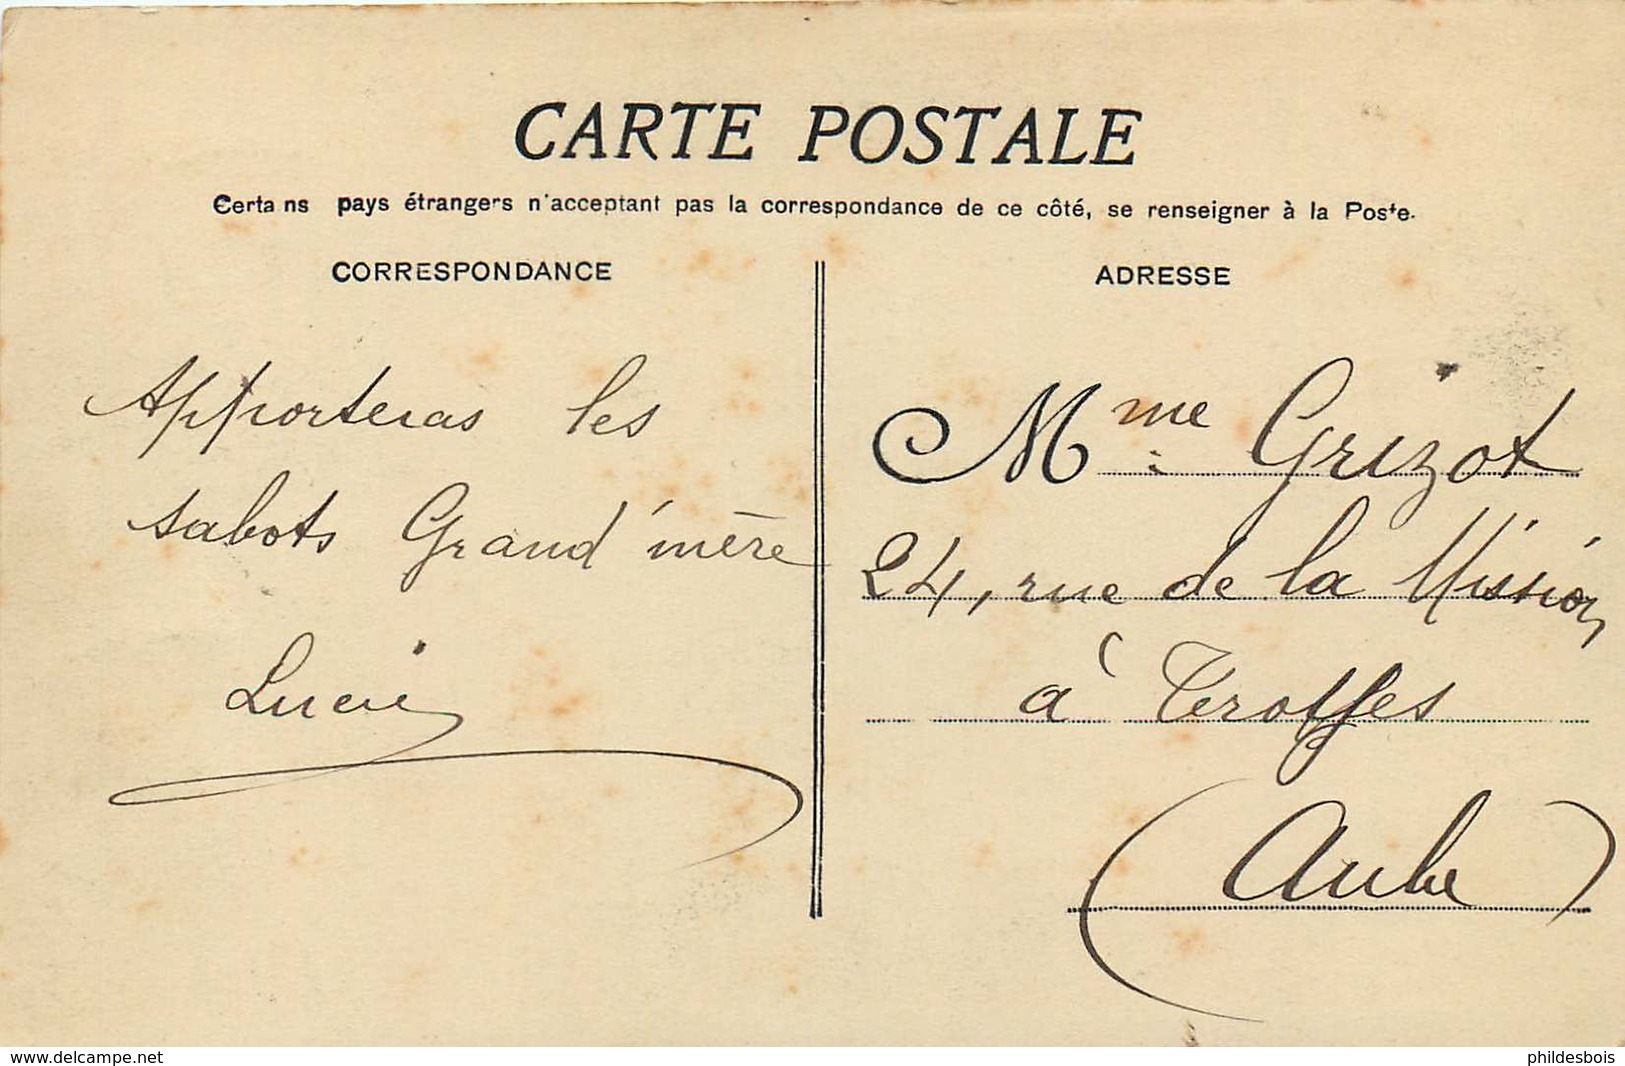 CARTE POSTALE
Certains pays étrangers n'acceptant pas la correspondance de ce côté, se renseigner à la Poste.
CORRESPONDANCE
Apporteras les
sabots Grand'mère
Lucie
ADRESSE
Mme Grizot
24, rue de la Mission
à Troyes
(Aube)
www.delcampe.net
phildesbois